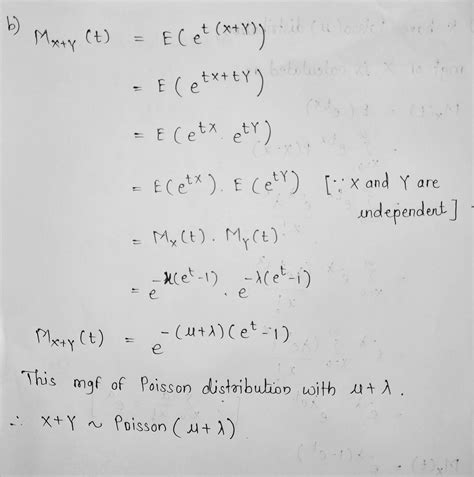 b) M_{X+Y}(t) = E(e^{t(X+Y)})
= E(e^{tX+tY})
= E(e^{tX} . e^{tY})
= E(e^{tX}) . E(e^{tY}) [∵ X and Y are
independent]
= M_X(t) . M_Y(t)
= e^{-μ(e^t-1)} . e^{-λ(e^t-1)}
M_{X+Y}(t) = e^{-(μ+λ)(e^t-1)}
This mgf of Poisson distribution with μ+λ.
∴ X+Y ~ Poisson(μ+λ)